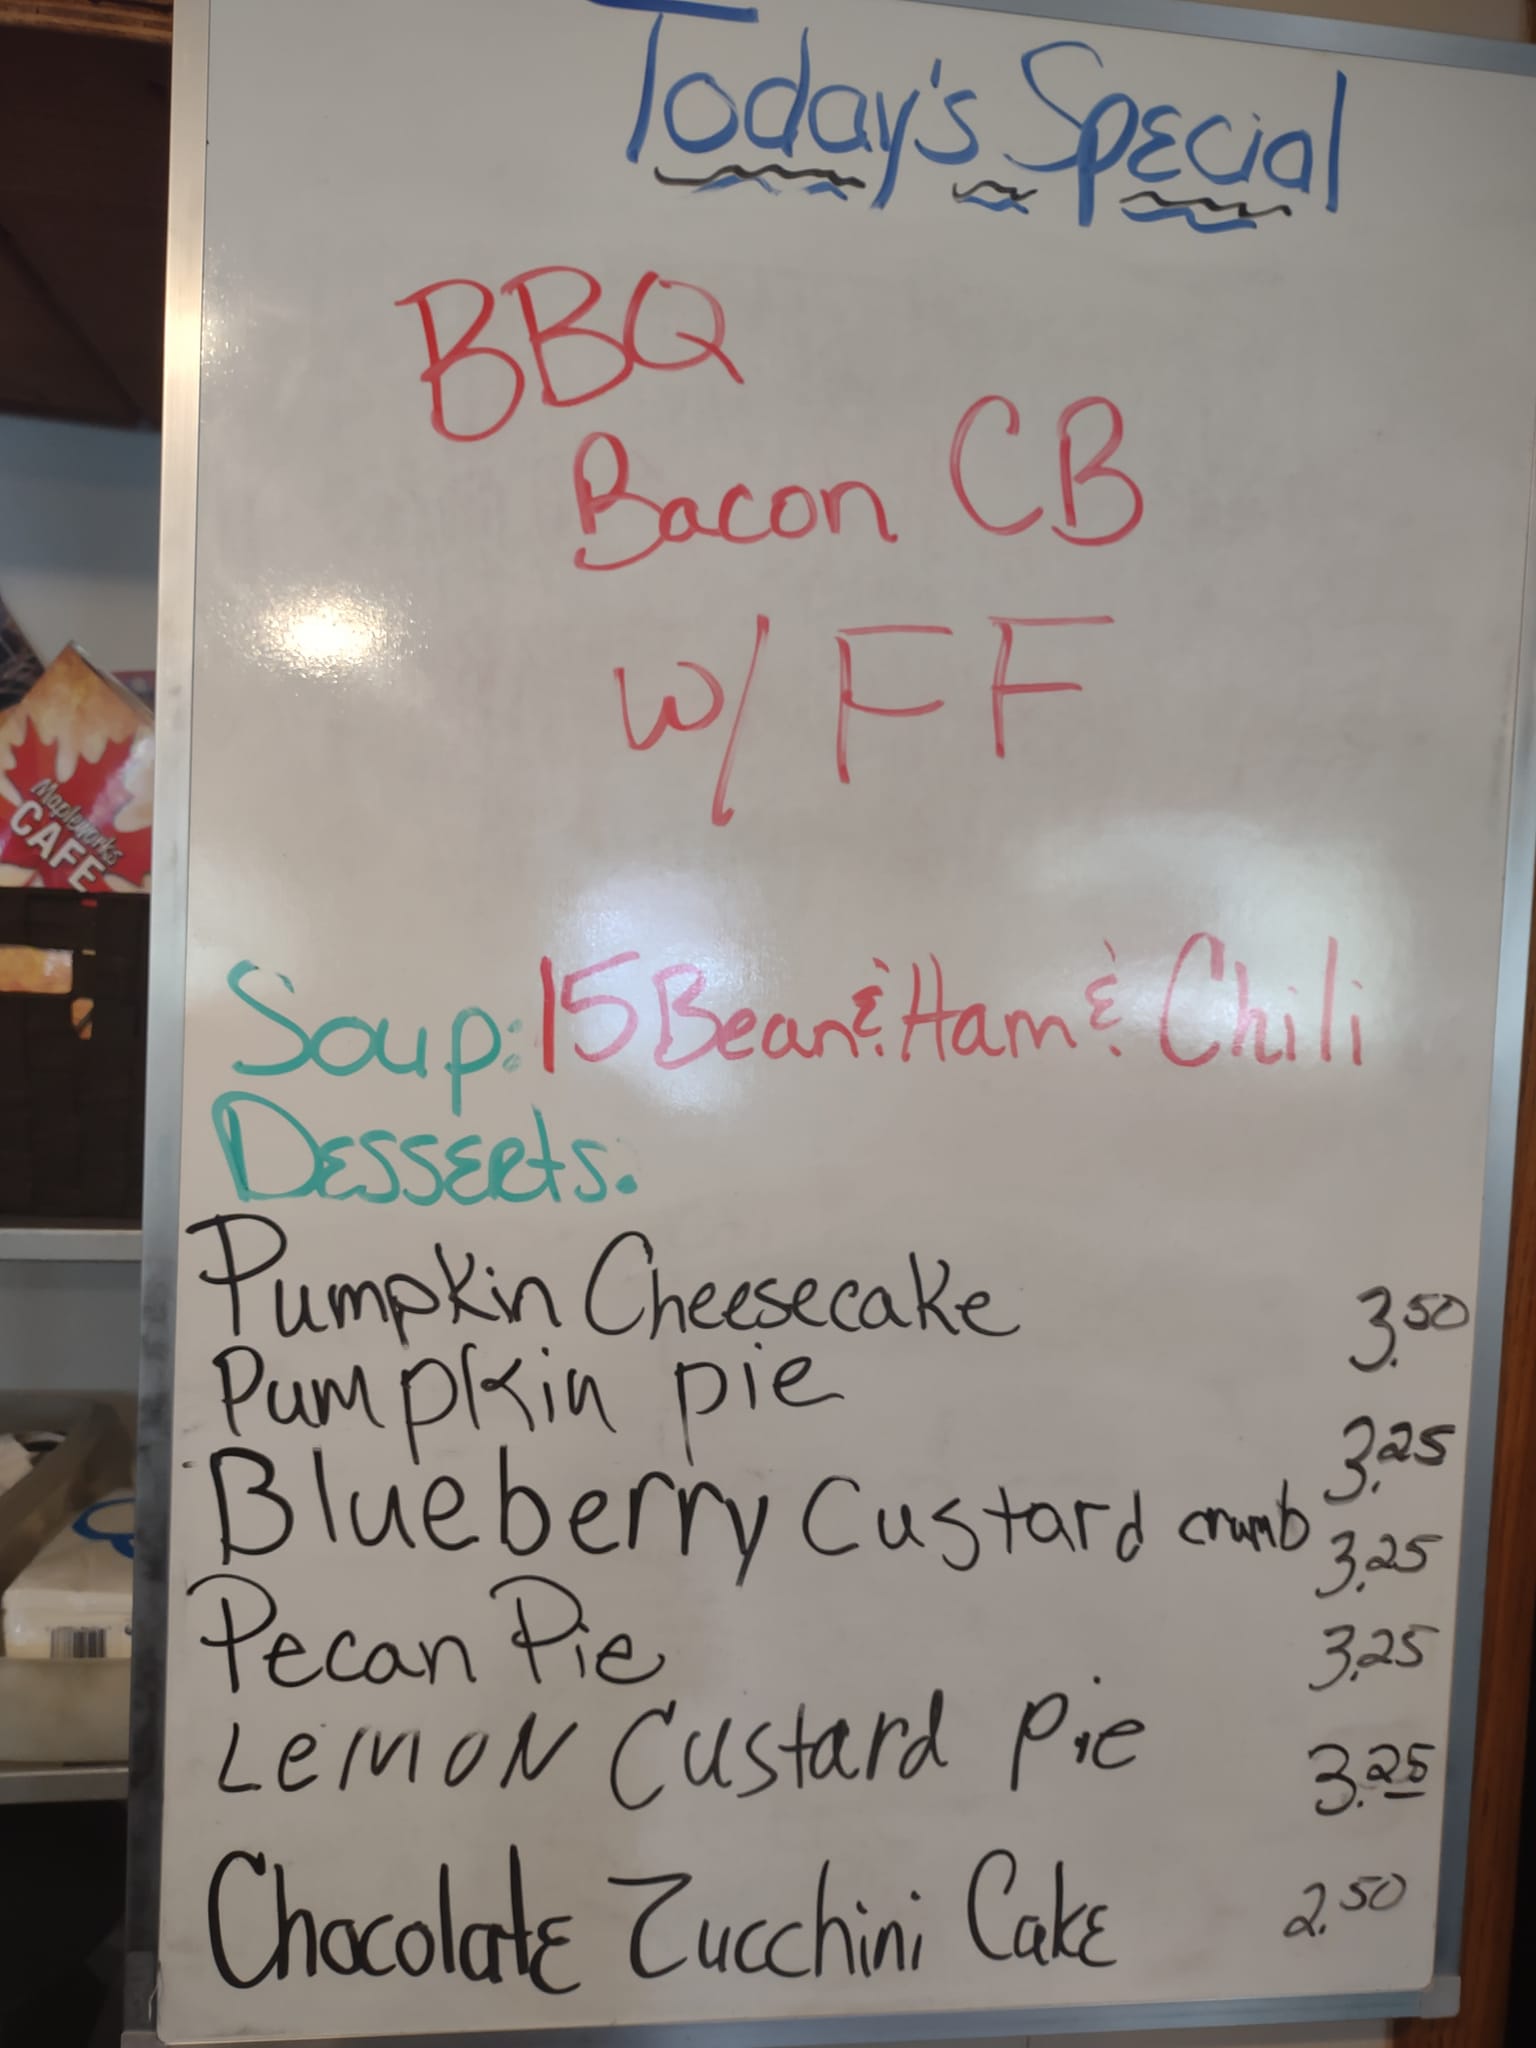 Today's Special
BBQ
Bacon CB
w/ FF
Mapleworks
CAFE
Soup: 15 Bean & Ham & Chili
Desserts:
Pumpkin Cheesecake 3.50
Pumpkin pie 3.25
Blueberry Custard crumb 3.25
Pecan Pie 3.25
Lemon Custard Pie 3.25
Chocolate Zucchini Cake 2.50